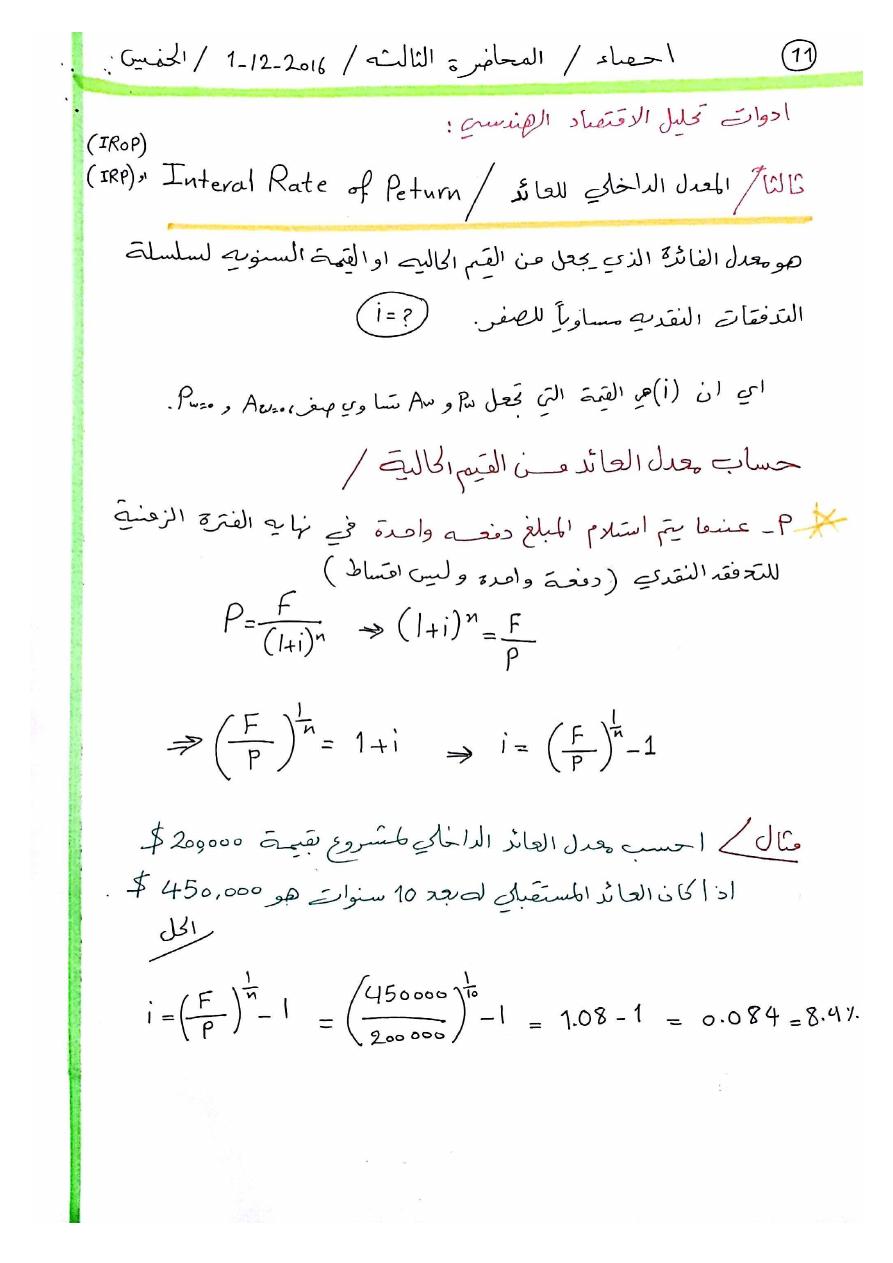 احصاء / المحاضرة الثالثه / 2016-12-1 / الخميس : (11)
ادوات تحليل الاقتصاد الهندسي :
(IRoP)
ثالثاً / المعدل الداخلي للعائد / Interal Rate of Peturn او (IRP)
هو معدل الفائزة الذي يجعل من القيم الحاليه او القيمة السنويه لسلسلة
التدفقات النقديه مساوياً للصفر. i = ?
اي ان (i) هي القيمة التي تجعل Pw و Aw تساوي صفر، Aw=0 و Pw=0.
حساب معدل العائد من القيم الحالية /
P - عندما يتم استلام المبلغ دفعه واحدة في نهايه الفترة الزمنية
للتدفقه النقدي (دفعة واحده وليس اقساط)
P = F/(1+i)^n ⇒ (1+i)^n = F/P
⇒ (F/P)^1/n = 1+i ⇒ i = (F/P)^1/n - 1
مثال / احسب معدل العائد الداخلي لمشروع بقيمة 200000 $
اذا كان العائد المستقبلي له بعد 10 سنوات هو 450,000 $ .
الحل
i = (F/P)^1/n - 1 = (450000/200000)^1/10 - 1 = 1.08 - 1 = 0.084 = 8.4%